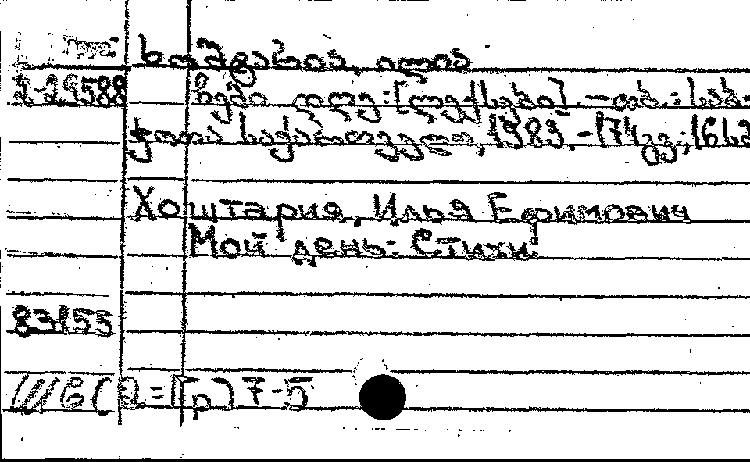 Груз.
ხოშტარია, ილია
2-29588 ჩემი დღე: [ლექსები]. – თბ.: საბ-
ჭოთა საქართველო, 1983. - 174 გვ.; 16სმ
Хоштария, Илья Ефимович
Мой день: Стихи
83-155
С(2=Гр)7-5